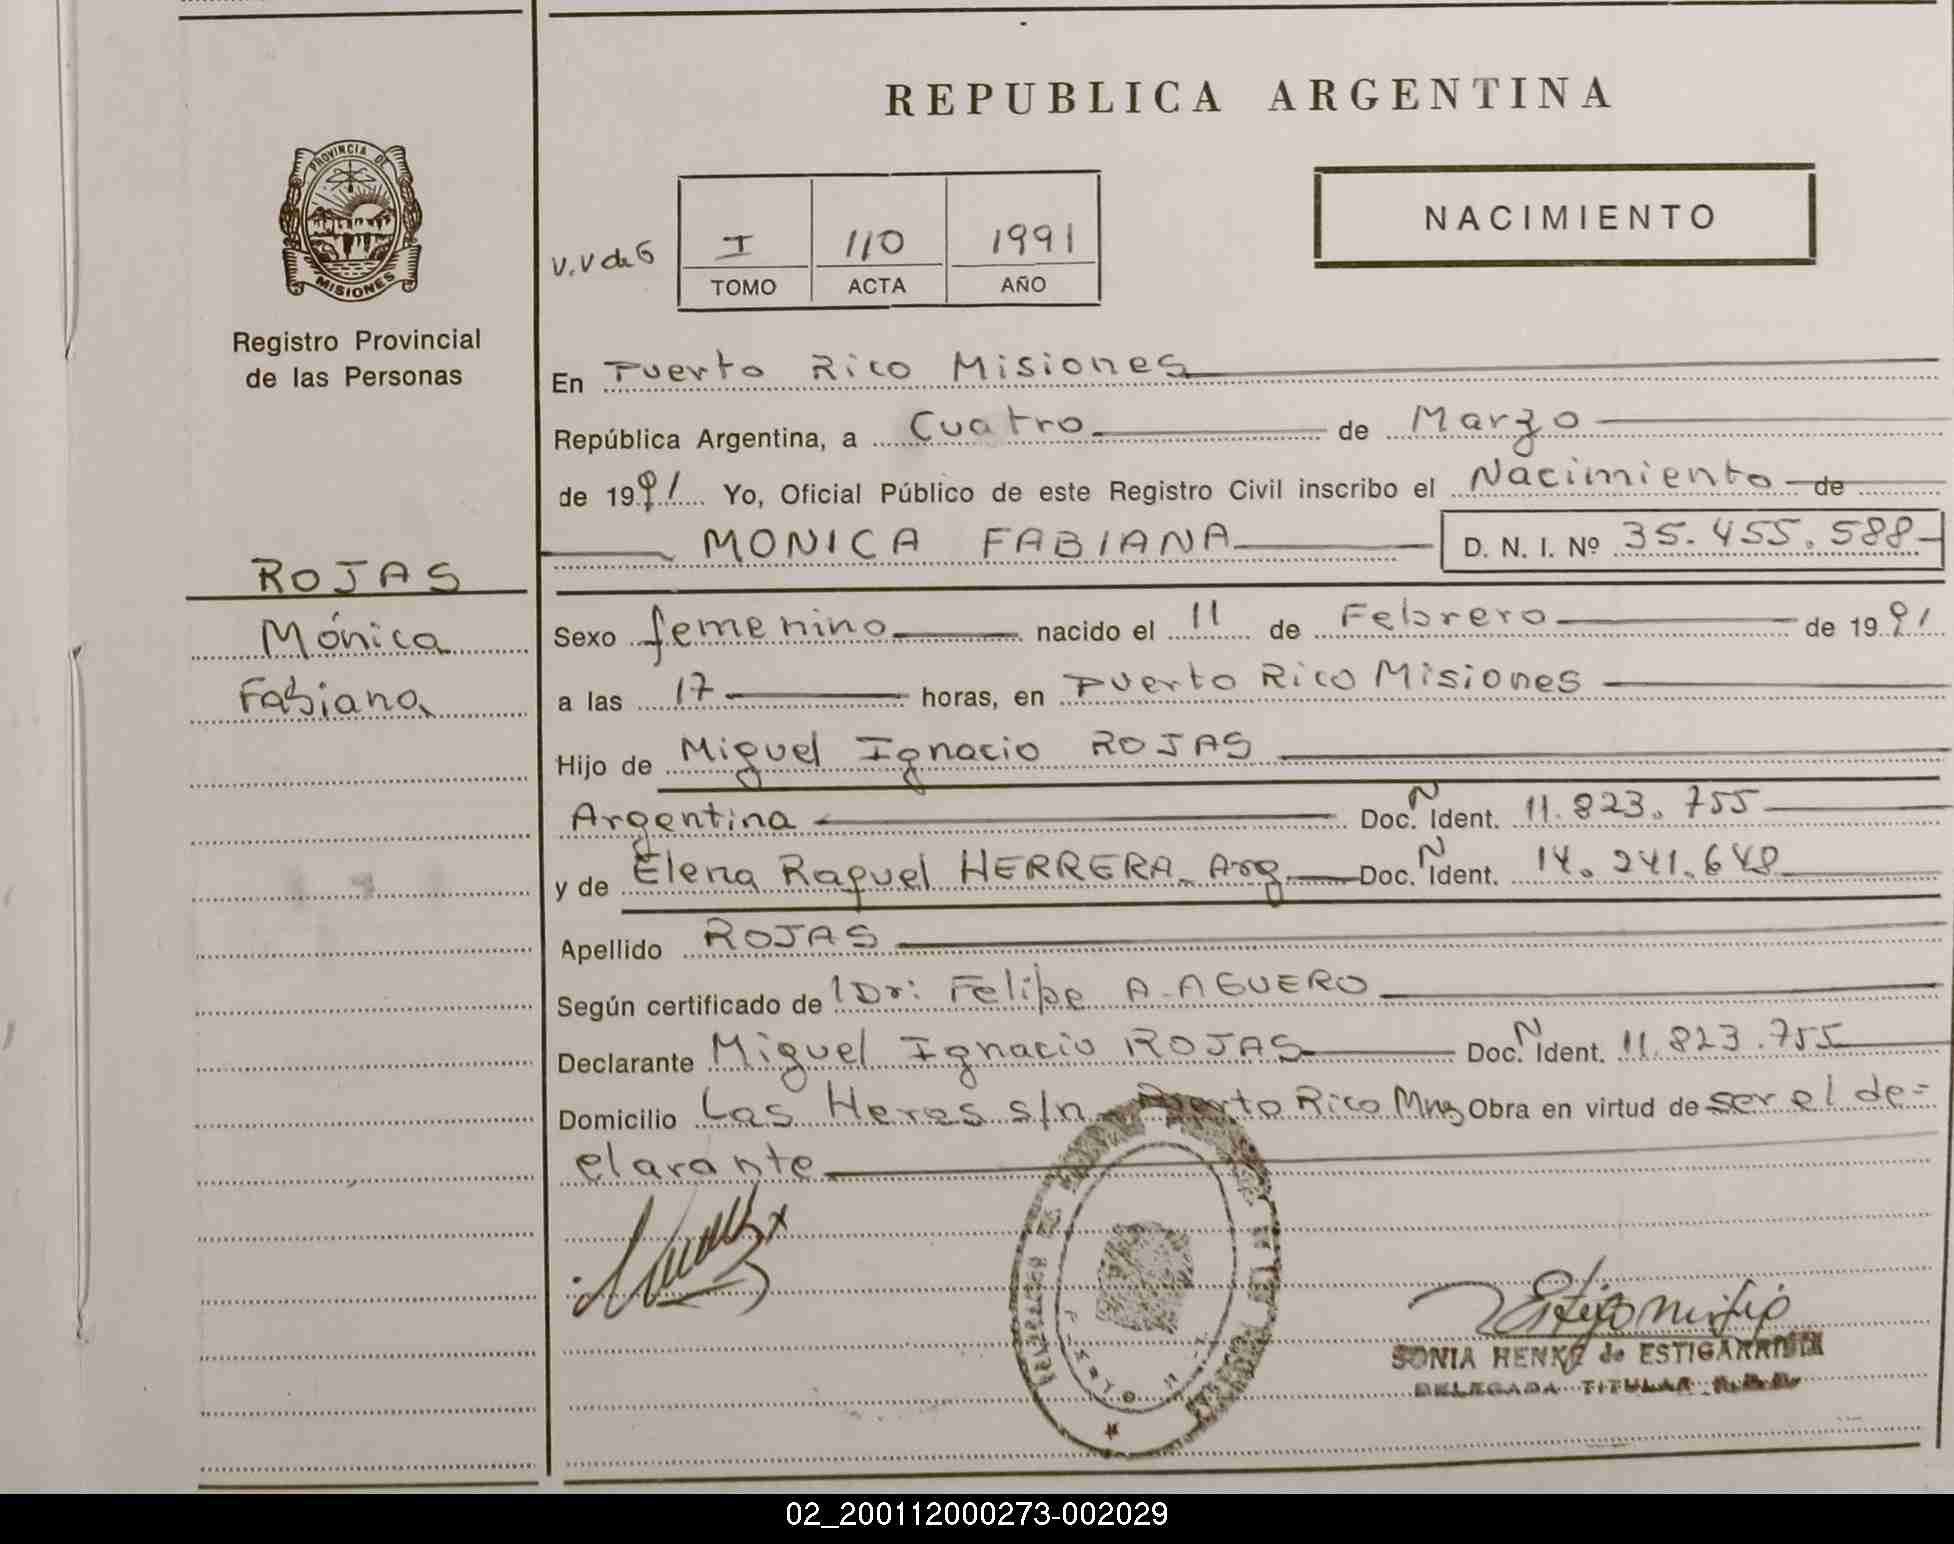 REPUBLICA ARGENTINA
PROVINCIA DE
MISIONES
Registro Provincial
de las Personas
NACIMIENTO
V.V de G
I 110 1991
TOMO ACTA AÑO
En Puerto Rico Misiones
República Argentina, a Cuatro de Marzo
de 1991 Yo, Oficial Público de este Registro Civil inscribo el Nacimiento de
MONICA FABIANA D. N. I. Nº 35.455.588
ROJAS
Mónica
Fabiana
Sexo femenino nacido el 11 de Febrero de 1991
a las 17 horas, en Puerto Rico Misiones
Hijo de Miguel Ignacio ROJAS
Argentina Doc. N Ident. 11.823.755
y de Elena Raquel HERRERA Arg Doc. N Ident. 14.241.648
Apellido ROJAS
Según certificado de Dr: Felipe A. AGUERO
Declarante Miguel Ignacio ROJAS Doc. N Ident. 11.823.755
Domicilio Las Heras s/n Puerto Rico Mnes Obra en virtud de ser el de=
clarante
SONIA HENKE de ESTIGARRIBIA
DELEGADA TITULAR
02_200112000273-002029